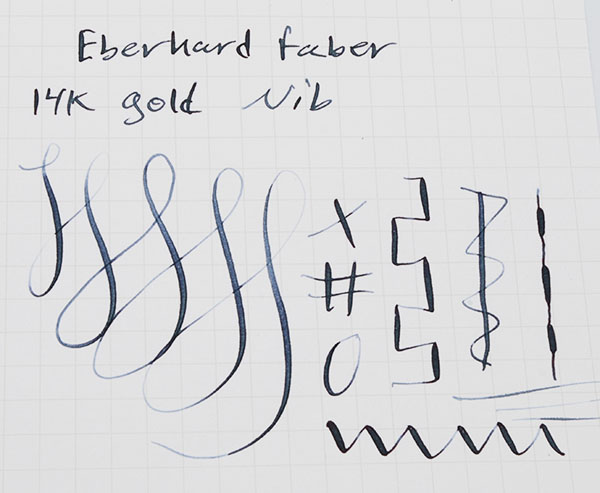 Eberhard faber
14K gold Nib